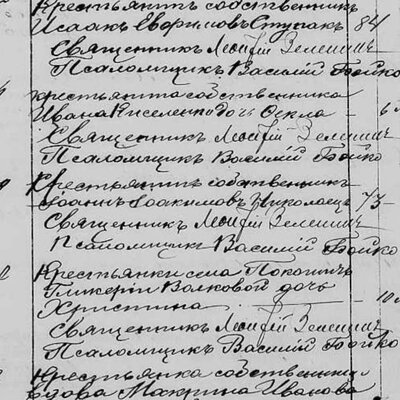 Крестьянинъ собственникъ
Исаакъ Евфимовъ Ступакъ 84
Священникъ Леонтій Зелениць
Псаломщикъ Василій Бойко
крестьянина собственника
Ивана Киселенко дочь Фекла 6
Священникъ Леонтій
Псаломщикъ Василій Бойко
Крестьянинъ собственникъ
Іоаннъ Іоакимовъ 73
Священникъ Леонтій
Псаломщикъ Василій Бойко
Крестьянки села
Гликеріи Волковой дочь
Христина 10
Священникъ Леонтій
Псаломщикъ Василій Бойко
Крестьянка собственница
вдова Макрина Иванова